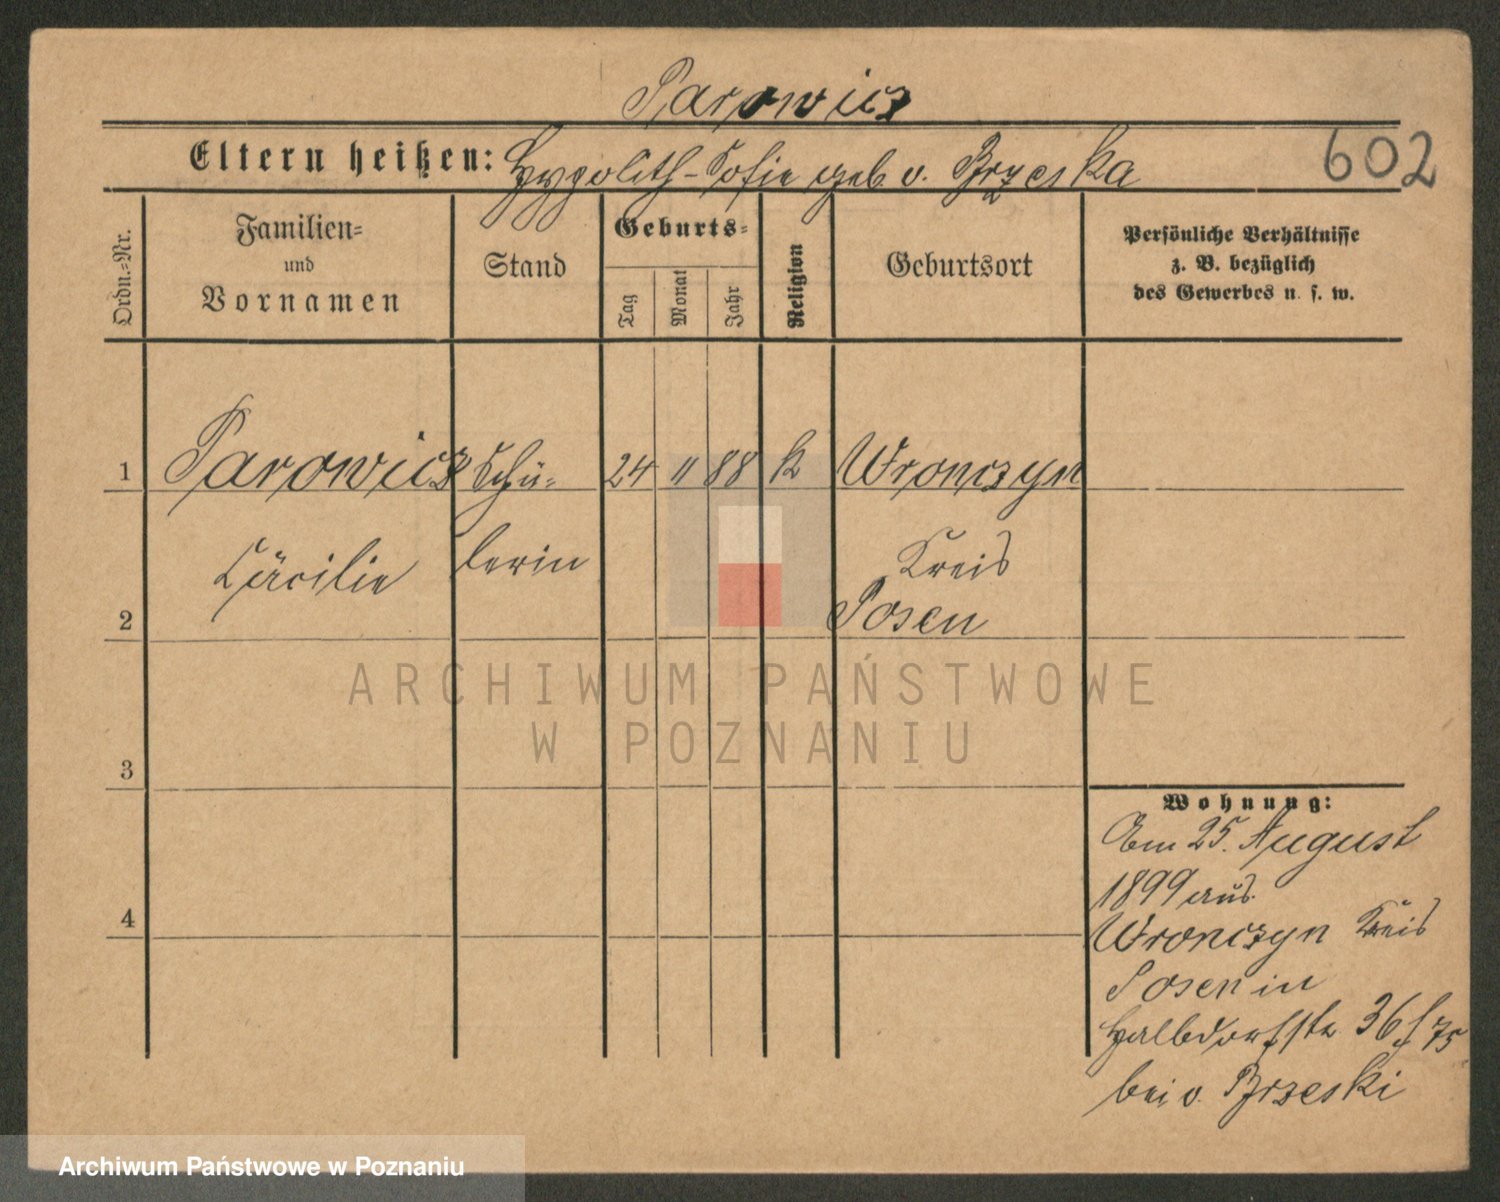 Parowicz
Eltern heißen: Hypolith-Sofie geb. v. Brzeska
602
Ordn.-Nr.
Familien-
und
Vornamen
Stand
Geburts-
Tag
Monat
Jahr
Religion
Geburtsort
Persönliche Verhältnisse
z. B. bezüglich
des Gewerbes u. s. w.
1 Parowicz Schü- 24 11 88 k Wronczyn
Cäcilie lerin Kreis
2 Posen
ARCHIWUM PAŃSTWOWE
W POZNANIU
3
Wohnung:
Am 25. August
1899 aus
4
Wronczyn Kreis
Posen in
Halbdorfstr 36
bei v. Brzeski
Archiwum Państwowe w Poznaniu